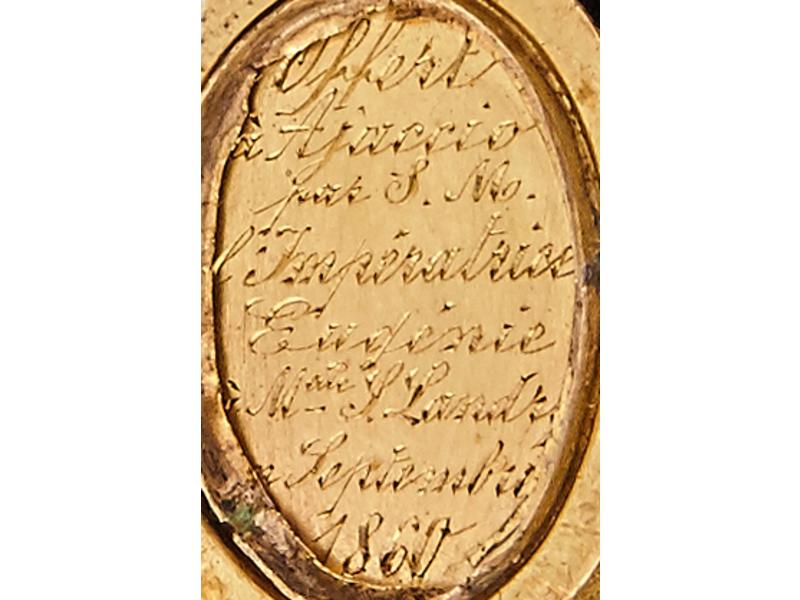 Offert
à Ajaccio
par S. M.
l'Impératrice
Eugénie
à S.
Septembre
1860